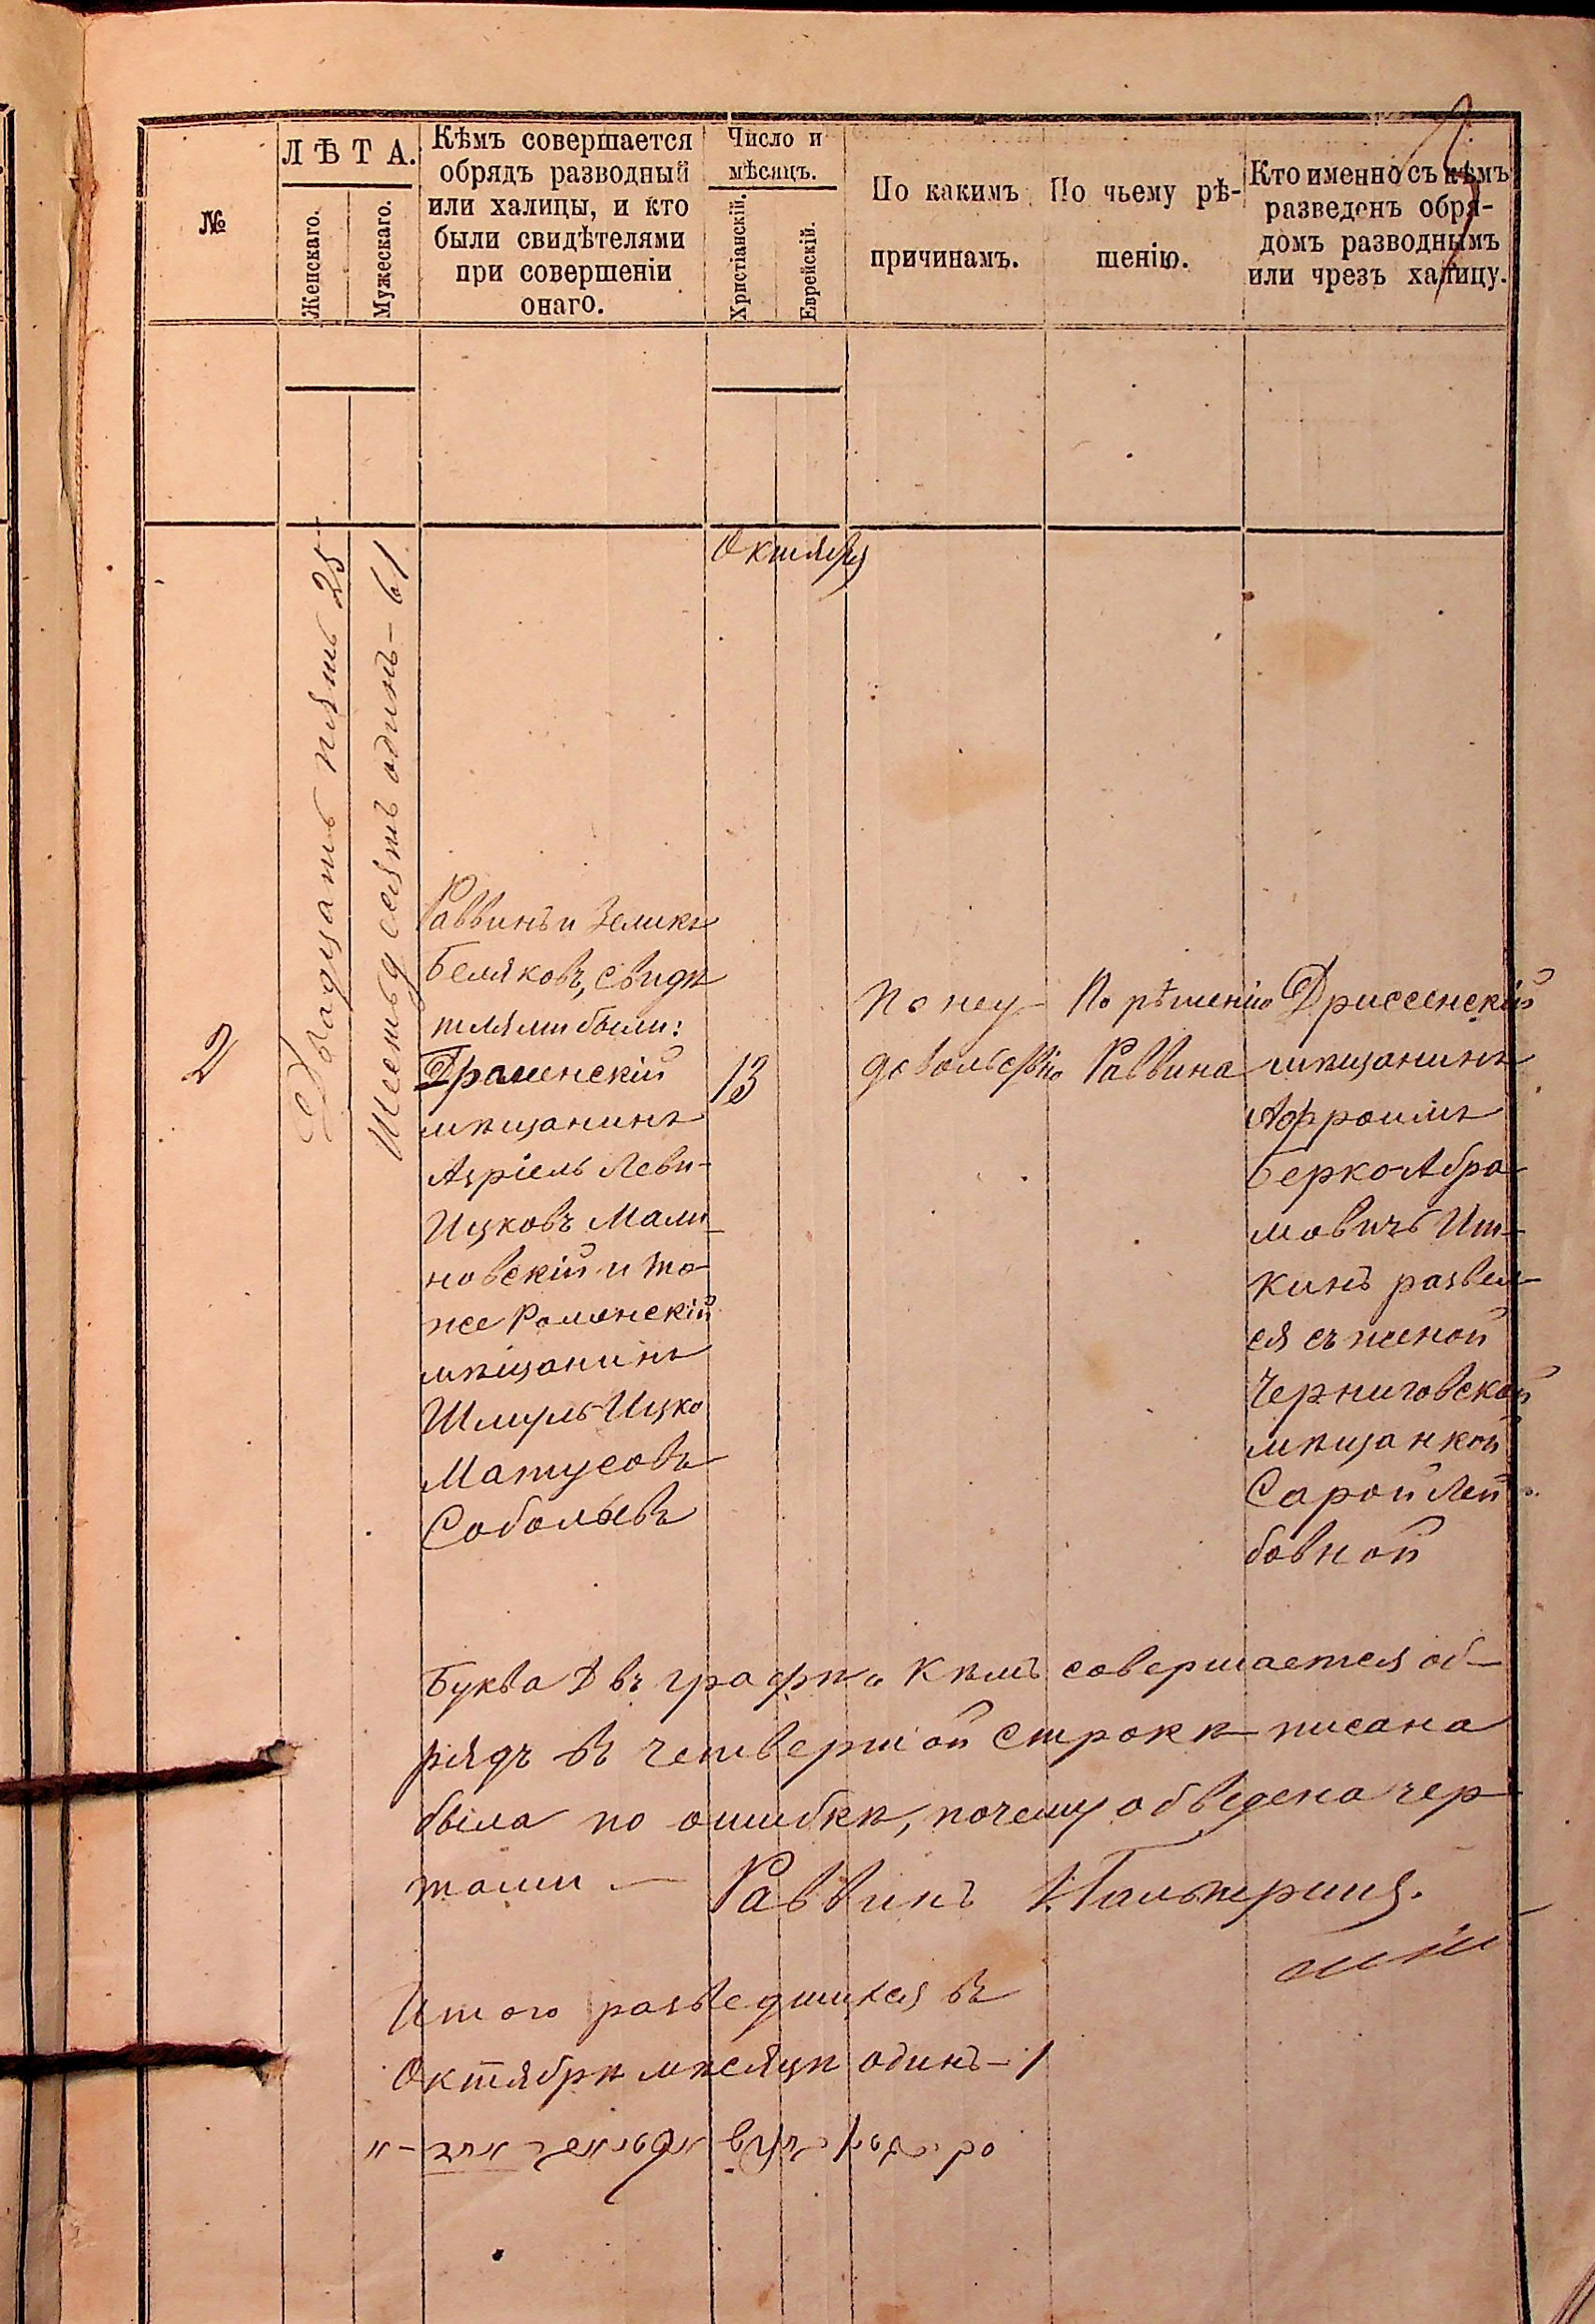 №
ЛѢТА.
Женскаго.
Мужескаго.
Кѣмъ совершается
обрядъ разводный
или халицы, и кто
были свидѣтелями
при совершеніи
онаго.
Число и
мѣсяцъ.
Христіанскій.
Еврейскій.
По какимъ
причинамъ.
По чьему рѣ-
шенію.
Кто именно съ кѣмъ
разведенъ обря-
домъ разводнымъ
или чрезъ халицу.
Октября
2
Двадцать пять 25
Шестьдесятъ одинъ - 61
Раввинъ и Зеликъ
Беляковъ, свидѣ
телями были:
мѣщанинъ
Азріель Леви-
Ицковъ Мали-
новскій и то-
же Роменскій
мѣщанинъ
Шмуль-Ицко
Матусовъ
Соболевъ
13
По неу-
довольствію
По рѣшенію
Раввина
Дриссенскій
мѣщанинъ
Афроимъ
Берко Абра
мовичъ Ит-
кинъ развел-
ся съ женой
Черниговской
мѣщанкой
Сарой Лей
бовной
Буква Д въ графѣ „Кѣмъ совершается об-
рядъ въ четвертой строкѣ писана
была по ошибкѣ, почему обведена чер
тами — Раввинъ
Итого разведшихся въ
Октябрѣ мѣсяцѣ одинъ - 1